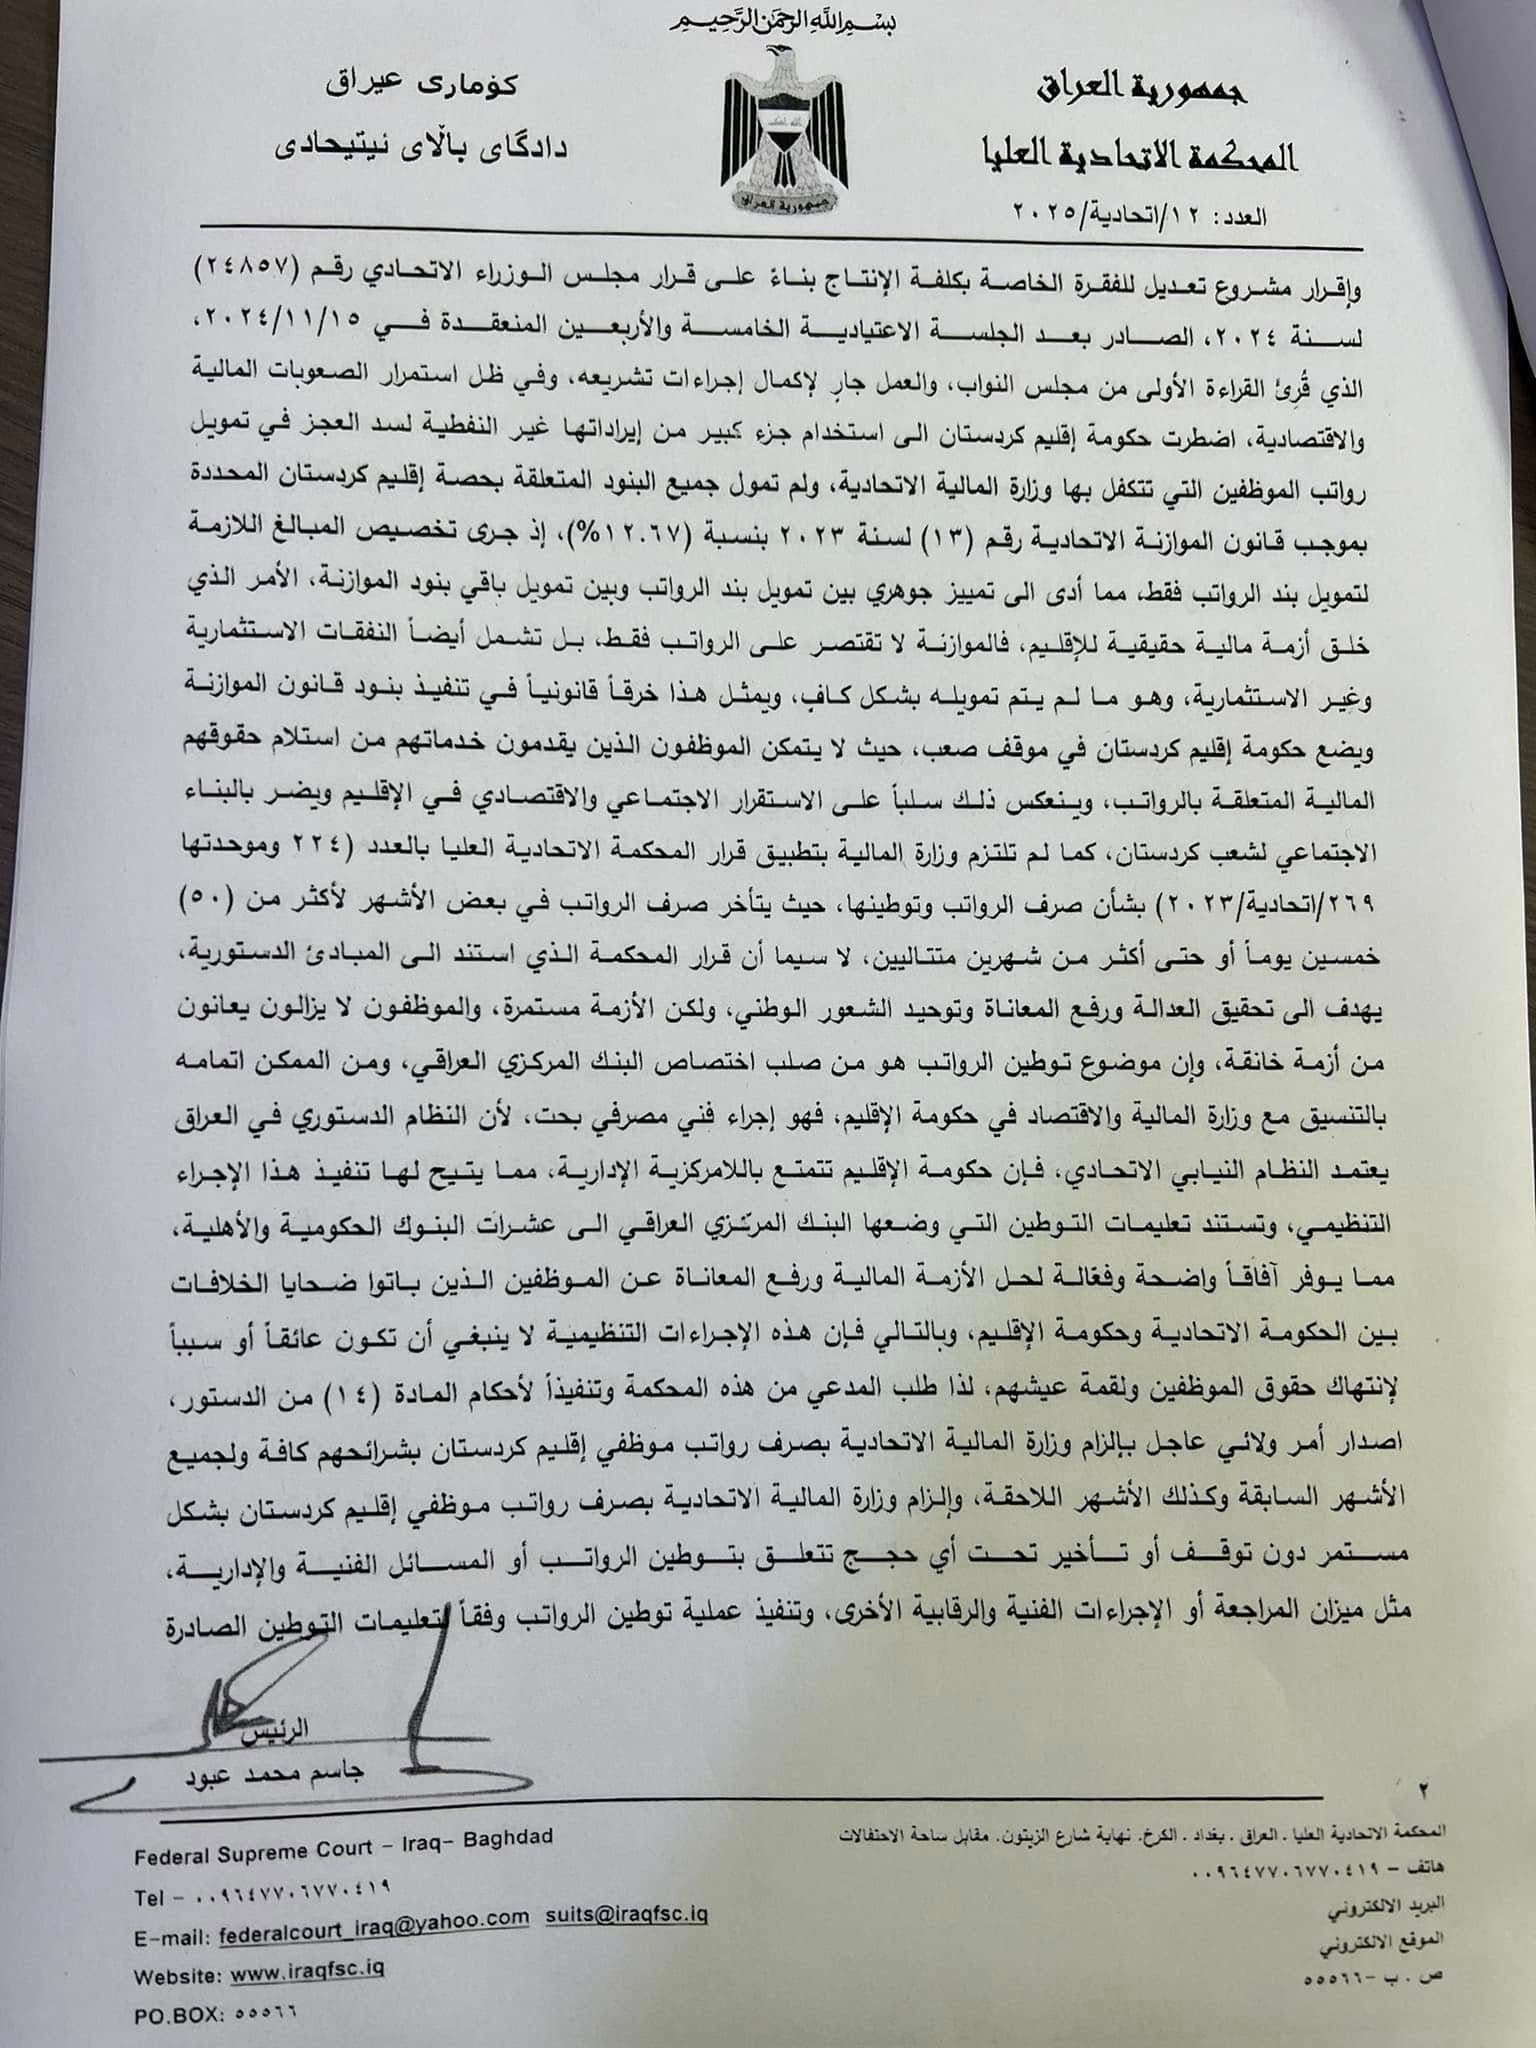 بسم الله الرحمن الرحيم
جمهورية العراق
المحكمة الاتحادية العليا
العدد: ١٢/اتحادية/٢٠٢٥
كۆماری عیراق
دادگای باڵای ئیتیحادی
جمهورية العراق
وإقرار مشروع تعديل للفقرة الخاصة بكلفة الإنتاج بناءً على قرار مجلس الوزراء الاتحادي رقم (٢٤٨٥٧)
لسنة ٢٠٢٤، الصادر بعد الجلسة الاعتيادية الخامسة والأربعين المنعقدة في ٢٠٢٤/١١/١٥،
الذي قُرئ القراءة الأولى من مجلس النواب، والعمل جارٍ لإكمال إجراءات تشريعه، وفي ظل استمرار الصعوبات المالية
والاقتصادية، اضطرت حكومة إقليم كردستان الى استخدام جزء كبير من إيراداتها غير النفطية لسد العجز في تمويل
رواتب الموظفين التي تتكفل بها وزارة المالية الاتحادية، ولم تمول جميع البنود المتعلقة بحصة إقليم كردستان المحددة
بموجب قانون الموازنة الاتحادية رقم (١٣) لسنة ٢٠٢٣ بنسبة (١٢.٦٧%)، إذ جرى تخصيص المبالغ اللازمة
لتمويل بند الرواتب فقط، مما أدى الى تمييز جوهري بين تمويل بند الرواتب وبين تمويل باقي بنود الموازنة، الأمر الذي
خلق أزمة مالية حقيقية للإقليم، فالموازنة لا تقتصر على الرواتب فقط، بل تشمل أيضاً النفقات الاستثمارية
وغير الاستثمارية، وهو ما لم يتم تمويله بشكل كافٍ، ويمثل هذا خرقاً قانونياً في تنفيذ بنود قانون الموازنة
ويضع حكومة إقليم كردستان في موقف صعب، حيث لا يتمكن الموظفون الذين يقدمون خدماتهم من استلام حقوقهم
المالية المتعلقة بالرواتب، وينعكس ذلك سلباً على الاستقرار الاجتماعي والاقتصادي في الإقليم ويضر بالبناء
الاجتماعي لشعب كردستان، كما لم تلتزم وزارة المالية بتطبيق قرار المحكمة الاتحادية العليا بالعدد (٢٢٤ وموحدتها
٢٦٩/اتحادية/٢٠٢٣) بشأن صرف الرواتب وتوطينها، حيث يتأخر صرف الرواتب في بعض الأشهر لأكثر من (٥٠)
خمسين يوماً أو حتى أكثر من شهرين متتاليين، لا سيما أن قرار المحكمة الذي استند الى المبادئ الدستورية،
يهدف الى تحقيق العدالة ورفع المعاناة وتوحيد الشعور الوطني، ولكن الأزمة مستمرة، والموظفون لا يزالون يعانون
من أزمة خانقة، وإن موضوع توطين الرواتب هو من صلب اختصاص البنك المركزي العراقي، ومن الممكن اتمامه
بالتنسيق مع وزارة المالية والاقتصاد في حكومة الإقليم، فهو إجراء فني مصرفي بحت، لأن النظام الدستوري في العراق
يعتمد النظام النيابي الاتحادي، فإن حكومة الإقليم تتمتع باللامركزية الإدارية، مما يتيح لها تنفيذ هذا الإجراء
التنظيمي، وتستند تعليمات التوطين التي وضعها البنك المركزي العراقي الى عشرات البنوك الحكومية والأهلية،
مما يوفر آفاقاً واضحة وفعّالة لحل الأزمة المالية ورفع المعاناة عن الموظفين الذين باتوا ضحايا الخلافات
بين الحكومة الاتحادية وحكومة الإقليم، وبالتالي فإن هذه الإجراءات التنظيمية لا ينبغي أن تكون عائقاً أو سبباً
لإنتهاك حقوق الموظفين ولقمة عيشهم، لذا طلب المدعي من هذه المحكمة وتنفيذاً لأحكام المادة (١٤) من الدستور،
اصدار أمر ولائي عاجل بإلزام وزارة المالية الاتحادية بصرف رواتب موظفي إقليم كردستان بشرائحهم كافة ولجميع
الأشهر السابقة وكذلك الأشهر اللاحقة، وإلزام وزارة المالية الاتحادية بصرف رواتب موظفي إقليم كردستان بشكل
مستمر دون توقف أو تأخير تحت أي حجج تتعلق بتوطين الرواتب أو المسائل الفنية والإدارية،
مثل ميزان المراجعة أو الإجراءات الفنية والرقابية الأخرى، وتنفيذ عملية توطين الرواتب وفقاً لتعليمات التوطين الصادرة
الرئيس
جاسم محمد عبود
٢
المحكمة الاتحادية العليا . العراق . بغداد . الكرخ. نهاية شارع الزيتون. مقابل ساحة الاحتفالات
هاتف – ٠٠٩٦٤٧٧٠٦٧٧٠٤١٩
البريد الالكتروني
الموقع الالكتروني
ص . ب -٥٥٥٦٦
Federal Supreme Court – Iraq– Baghdad
Tel – ٠٠٩٦٤٧٧٠٦٧٧٠٤١٩
E-mail: federalcourt_iraq@yahoo.com suits@iraqfsc.iq
Website: www.iraqfsc.iq
PO.BOX: ٥٥٥٦٦